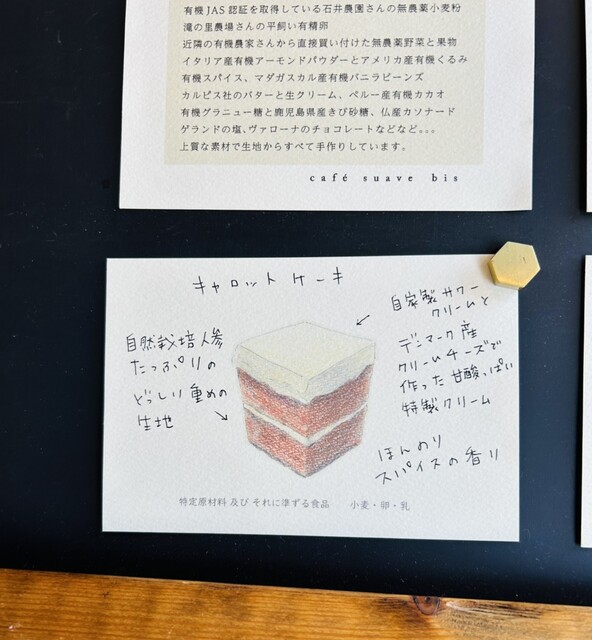 有機JAS認証を取得している石井農園さんの無農薬小麦粉
滝の里農場さんの平飼い有精卵
近隣の有機農家さんから直接買い付けた無農薬野菜と果物
イタリア産有機アーモンドパウダーとアメリカ産有機くるみ
有機スパイス、マダガスカル産有機バニラビーンズ
カルピス社のバターと生クリーム、ペルー産有機カカオ
有機グラニュー糖と鹿児島県産きび砂糖、仏産カソナード
ゲランドの塩、ヴァローナのチョコレートなどなど。。。
上質な素材で生地からすべて手作りしています。
café suave bis
キャロットケーキ
自然栽培人参
たっぷりの
どっしり重めの
生地
自家製サワー
クリームと
デンマーク産
クリームチーズで
作った甘酸っぱい
特製クリーム
ほんのり
スパイスの香り
特定原材料 及び それに準ずる食品 小麦・卵・乳